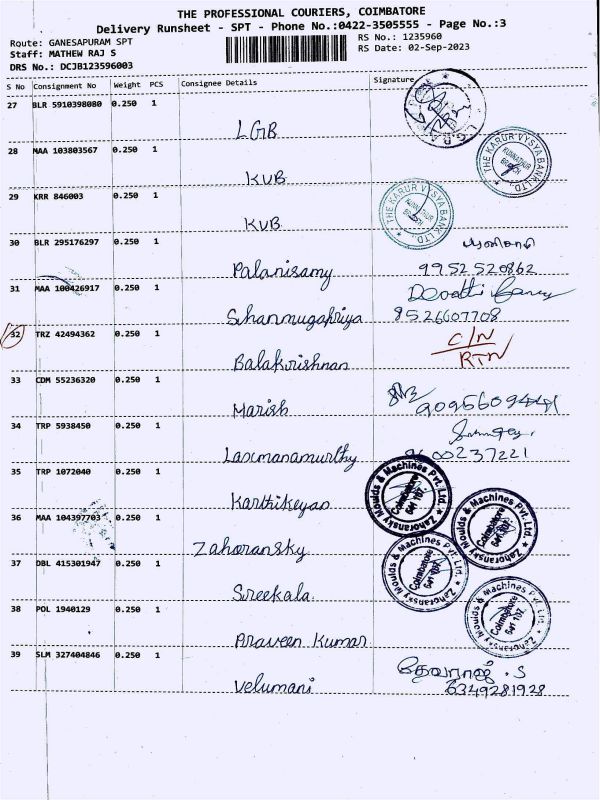 THE PROFESSIONAL COURIERS, COIMBATORE
Delivery Runsheet - SPT - Phone No.:0422-3505555 - Page No.:3
Route: GANESAPURAM SPT
RS No.: 1235960
Staff: MATHEW RAJ S
RS Date: 02-Sep-2023
DRS No.: DCJB123596003
S No Consignment No Weight PCS Consignee Details Signature
27 BLR 5910398080 0.250 1
LGB
28 MAA 103803567 0.250 1
KVB
THE KARUR VYSYA BANK LTD.
KUNNATHUR BRANCH
29 KRR 846003 0.250 1
KVB
THE KARUR VYSYA BANK LTD.
KUNNATHUR BRANCH
30 BLR 295176297 0.250 1
Palanisamy 9952520862
31 MAA 100426917 0.250 1
Shanmugapriya 8526607708
32 TRZ 42494362 0.250 1
C/N
RTN
Balakrishnan
33 CDM 55236320 0.250 1
Marish
34 TRP 5938450 0.250 1
Laxmanamurthy 9600237221
35 TRP 1072040 0.250 1
Karthikeyan
Zahoransky Moulds & Machines Pvt. Ltd.
Coimbatore
641 107
36 MAA 104397703 0.250 1
Zahoransky
Zahoransky Moulds & Machines Pvt. Ltd.
Coimbatore
641 107
37 DBL 415301947 0.250 1
Sreekala.
Zahoransky Moulds & Machines Pvt. Ltd.
Coimbatore
641 107
38 POL 1940129 0.250 1
Praveen Kumar
Zahoransky Moulds & Machines Pvt. Ltd.
Coimbatore
641 107
39 SLM 327404846 0.250 1
தேவராஜ் . S
Velumani 6349281928